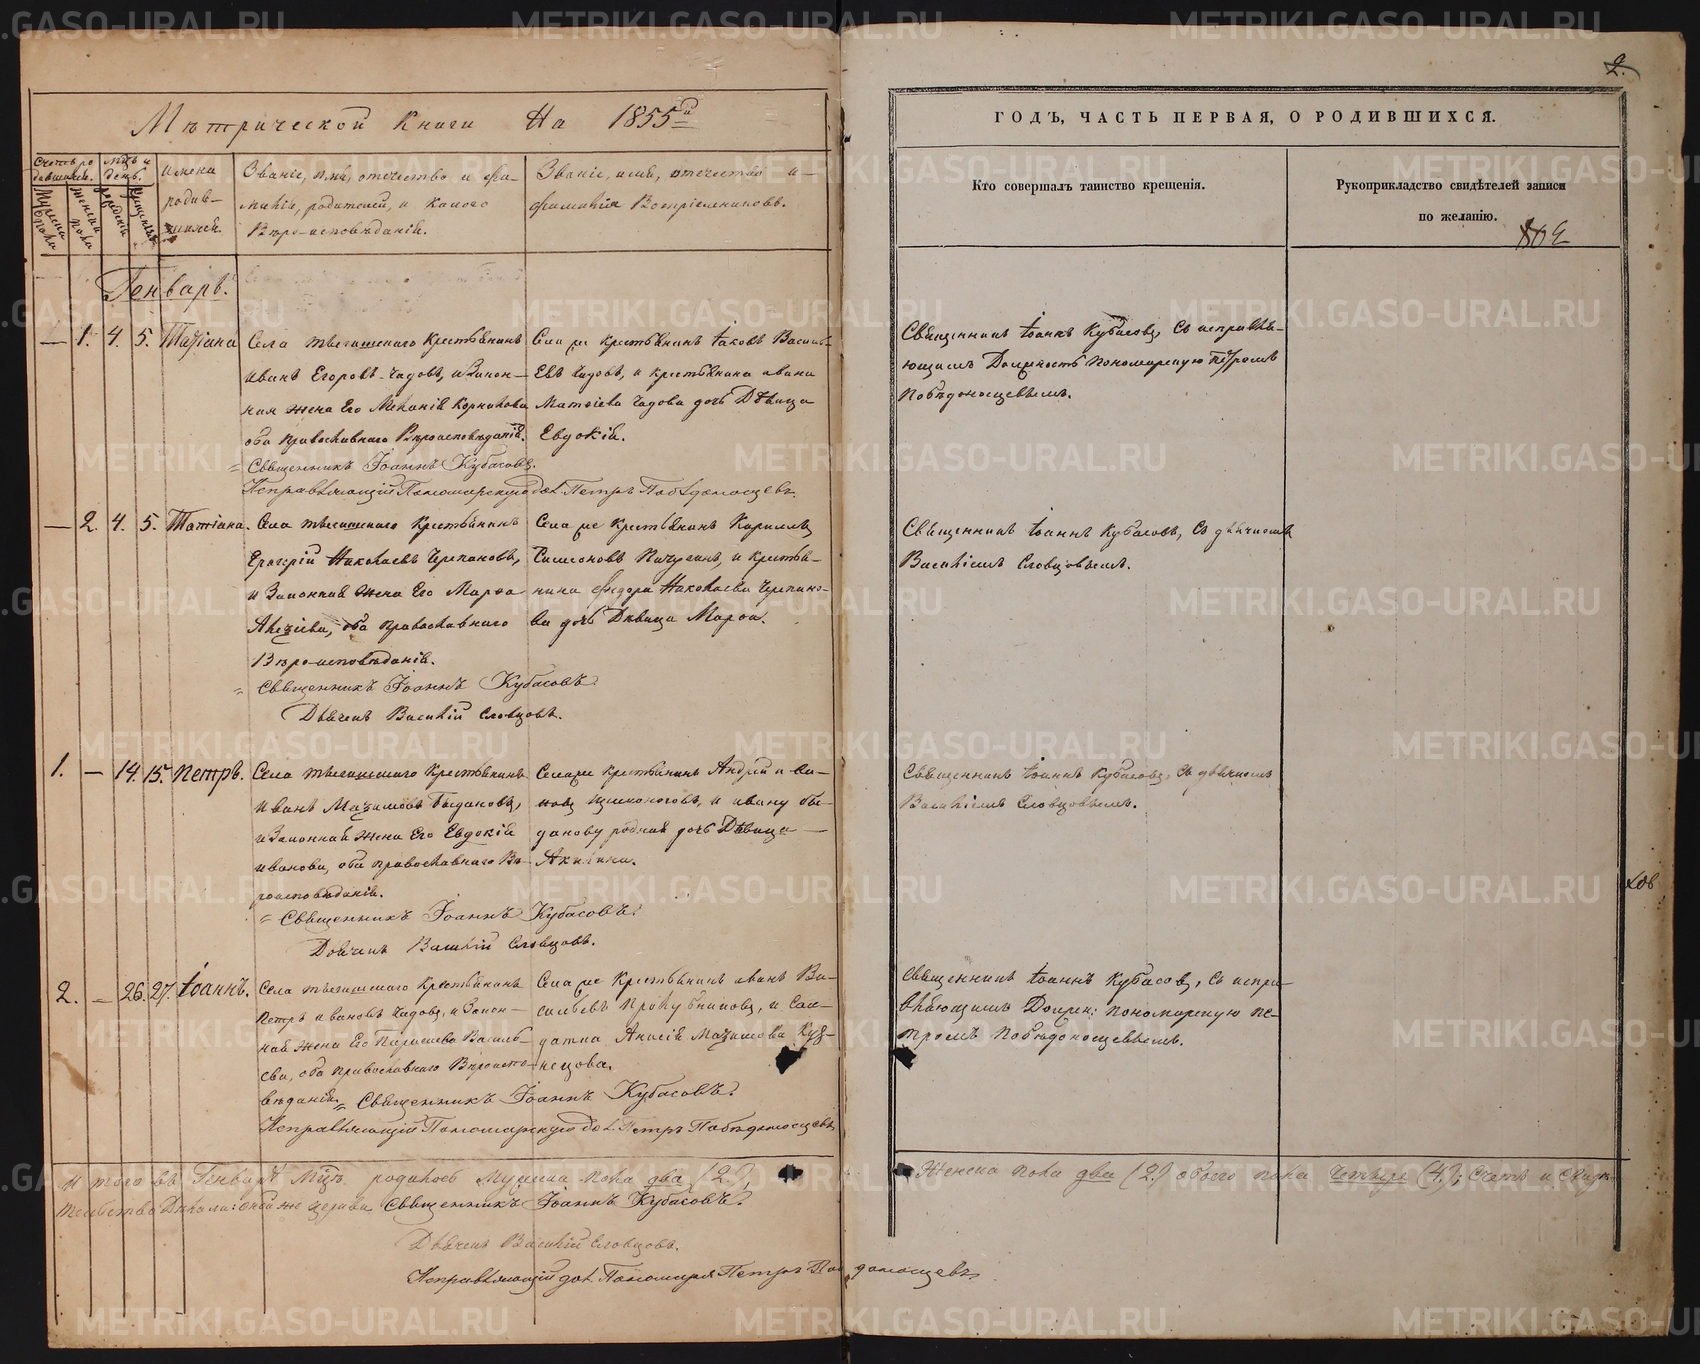 Метрической Книги На 1855й
2.
ГОДЪ, ЧАСТЬ ПЕРВАЯ, О РОДИВШИХСЯ.
Счетъ родившихся.
Мужеска пола
Женска пола
Мцъ и день.
рожденія
крещенія
имена родившихся.
Званіе, имя, отечество и фамилія, родителей, и какого Вѣроисповѣданія.
Званіе, имя, отечество и фамилія Воспріемниковъ.
Кто совершалъ таинство крещенія.
Рукоприкладство свидѣтелей записи
по желанію.
Генварь.
— 1. 4. 5. Татіана
Села тычишскаго Крестьянинъ
Иванъ Егоровъ Чадовъ, и Закон-
ная жена Его
оба Православнаго Вѣроисповѣданія.
= Священникъ Іоаннъ Кубасовъ.
Исправляющій Пономарскую дол. Петръ Побѣдоносцевъ.
Села же крестьянинъ Іаковъ Василь-
евъ Чадовъ, и крестьянина ивана
Матвіева Чадова дочь Дѣвица
Евдокія.
Священникъ Іоаннъ Кубасовъ, Съ исправля-
ющимъ Должность пономарскую Петромъ
Побѣдоносцевымъ.
— 2. 4. 5. Татіана.
Крестьянинъ
Николаевъ Черпановъ,
и Законная жена Его Марфа
оба Православнаго
Вѣроисповѣданія.
= Священникъ Іоаннъ Кубасовъ.
Дьячекъ Василій Словцовъ.
Села же Крестьянинъ Кириллъ
Симеоновъ Пичугинъ, и крестья-
нина Федора Николаева Черпано-
ва дочь Дѣвица Марфа.
Священникъ Іоаннъ Кубасовъ, Съ дьячкомъ
Василіемъ Словцовымъ.
1. — 14. 15. Петръ.
Крестьянинъ
Иванъ Максимовъ Быдановъ,
и Законная жена Его Евдокія
иванова, оба православнаго Вѣ-
роисповѣданія.
= Священникъ Іоаннъ Кубасовъ.
Дьячекъ Василій Словцовъ.
Села же крестьянинъ Андрей и ва-
новъ и ивану бы-
данову родная дочь Дѣвица —
Акилина.
Священникъ Іоаннъ Кубасовъ, Съ дьячкомъ
Василіемъ Словцовымъ.
2. — 26. 27. Іоаннъ.
Крестьянинъ
Петръ ивановъ Чадовъ, и Закон-
ная жена Его Парасева Василь-
ева, оба православнаго Вѣроиспо-
вѣданія. = Священникъ Іоаннъ Кубасовъ.
Исправляющій Пономарскую дол. Петръ Побѣдоносцевъ
Села же Крестьянинъ иванъ Ва-
сильевъ Прокубниковъ, и Сол-
датка Анисія Максимова Куз-
нецова.
Священникъ Іоаннъ Кубасовъ, Съ испра-
вляющимъ Должн: пономарскую Пе-
тромъ Побѣдоносцевымъ.
Итого въ Генварѣ Мцѣ родилось Мужеска пола два (2.),
Женска пола два (2.) обоего пола четыре (4.);
Священникъ Іоаннъ Кубасовъ.
Дьячекъ Василій Словцовъ.
Исправляющій дол. Пономаря Петръ Побѣдоносцевъ
METRIKI.GASO-URAL.RU